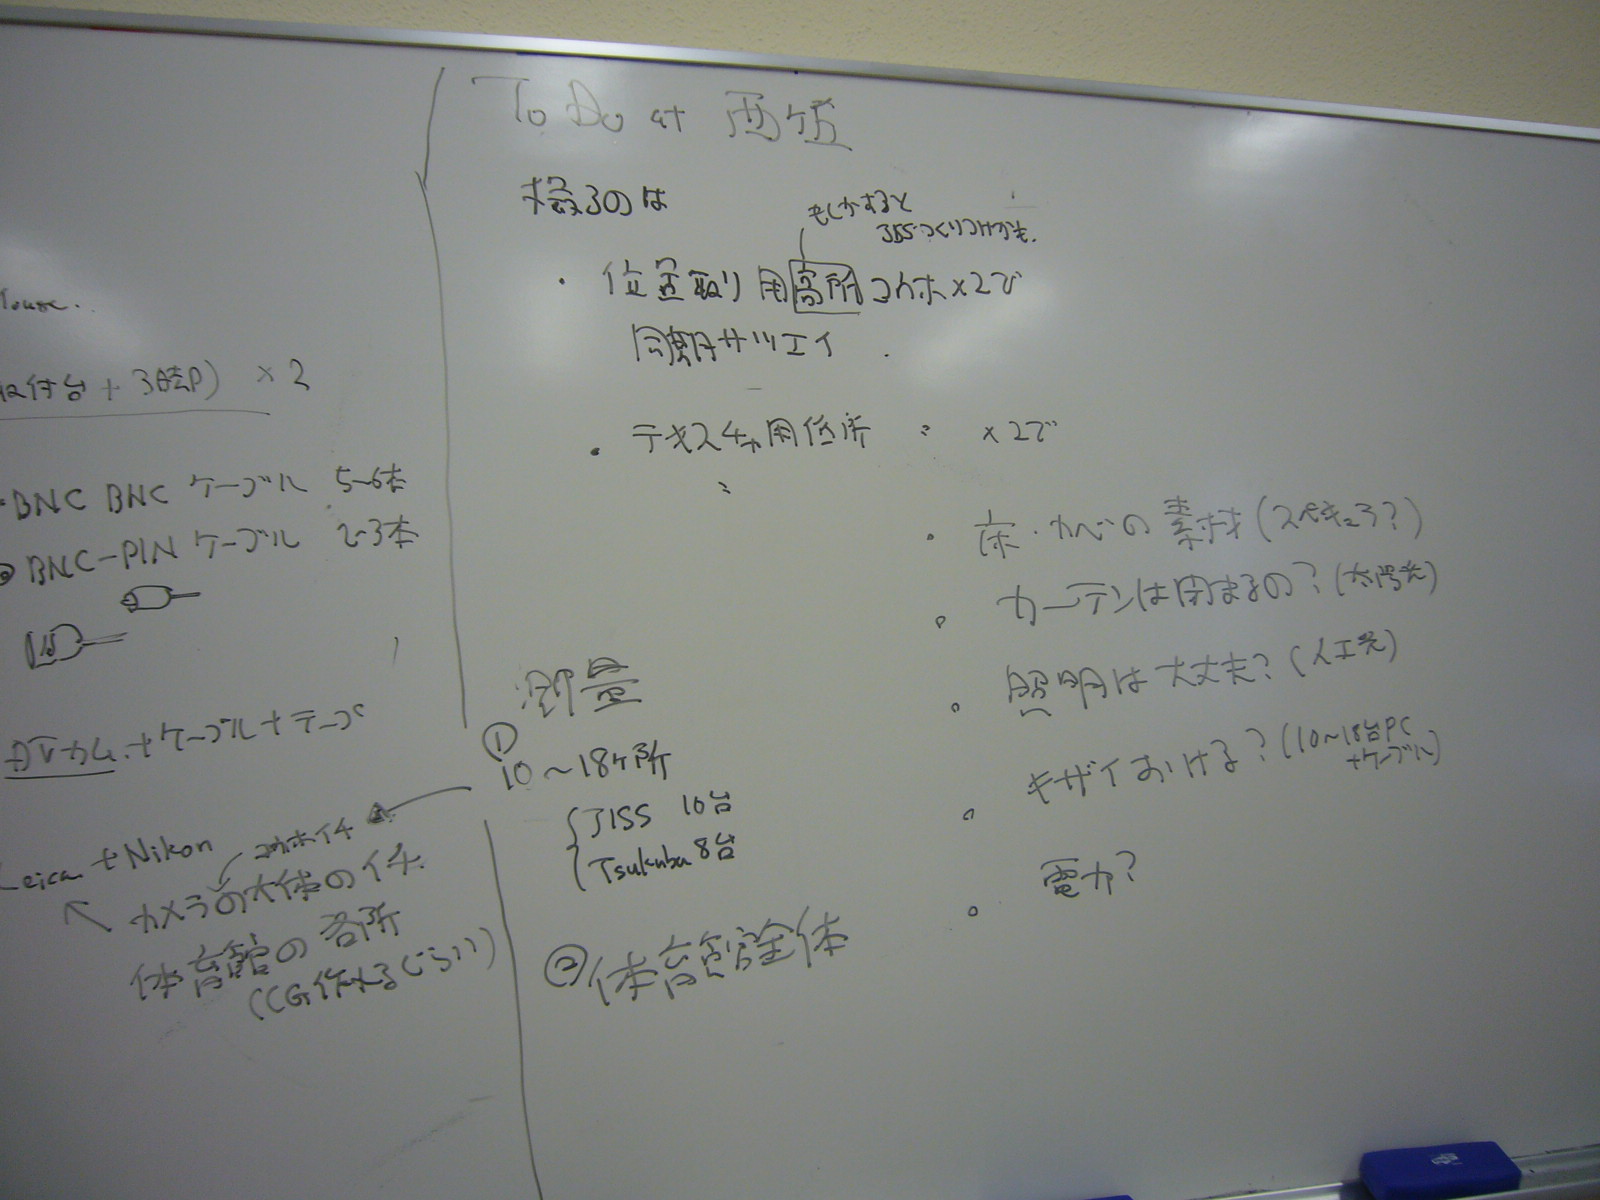 To Do at
撮るのは
もしかすると
位置取り用高所カメラ×2で
同期サツエイ
テキスチャ用低所 〃 ×2で
〃
・床・カベの素材(スペキュラ?)
・カーテンは閉まるの?(太陽光)
・照明は大丈夫?(人工光)
・キザイおける?(10〜18台PC
+ケーブル)
・電力?
測量
①
10〜18ヶ所
JISS 10台
Tsukuba 8台
②体育館全体
台 + 3脚) × 2
・BNC BNC ケーブル 5~6本
BNC-PIN ケーブル 2~3本
DVカム + ケーブル + テープ
Leica + Nikon
カメラの大体のイチ
体育館の各所
(CG作れるくらい)